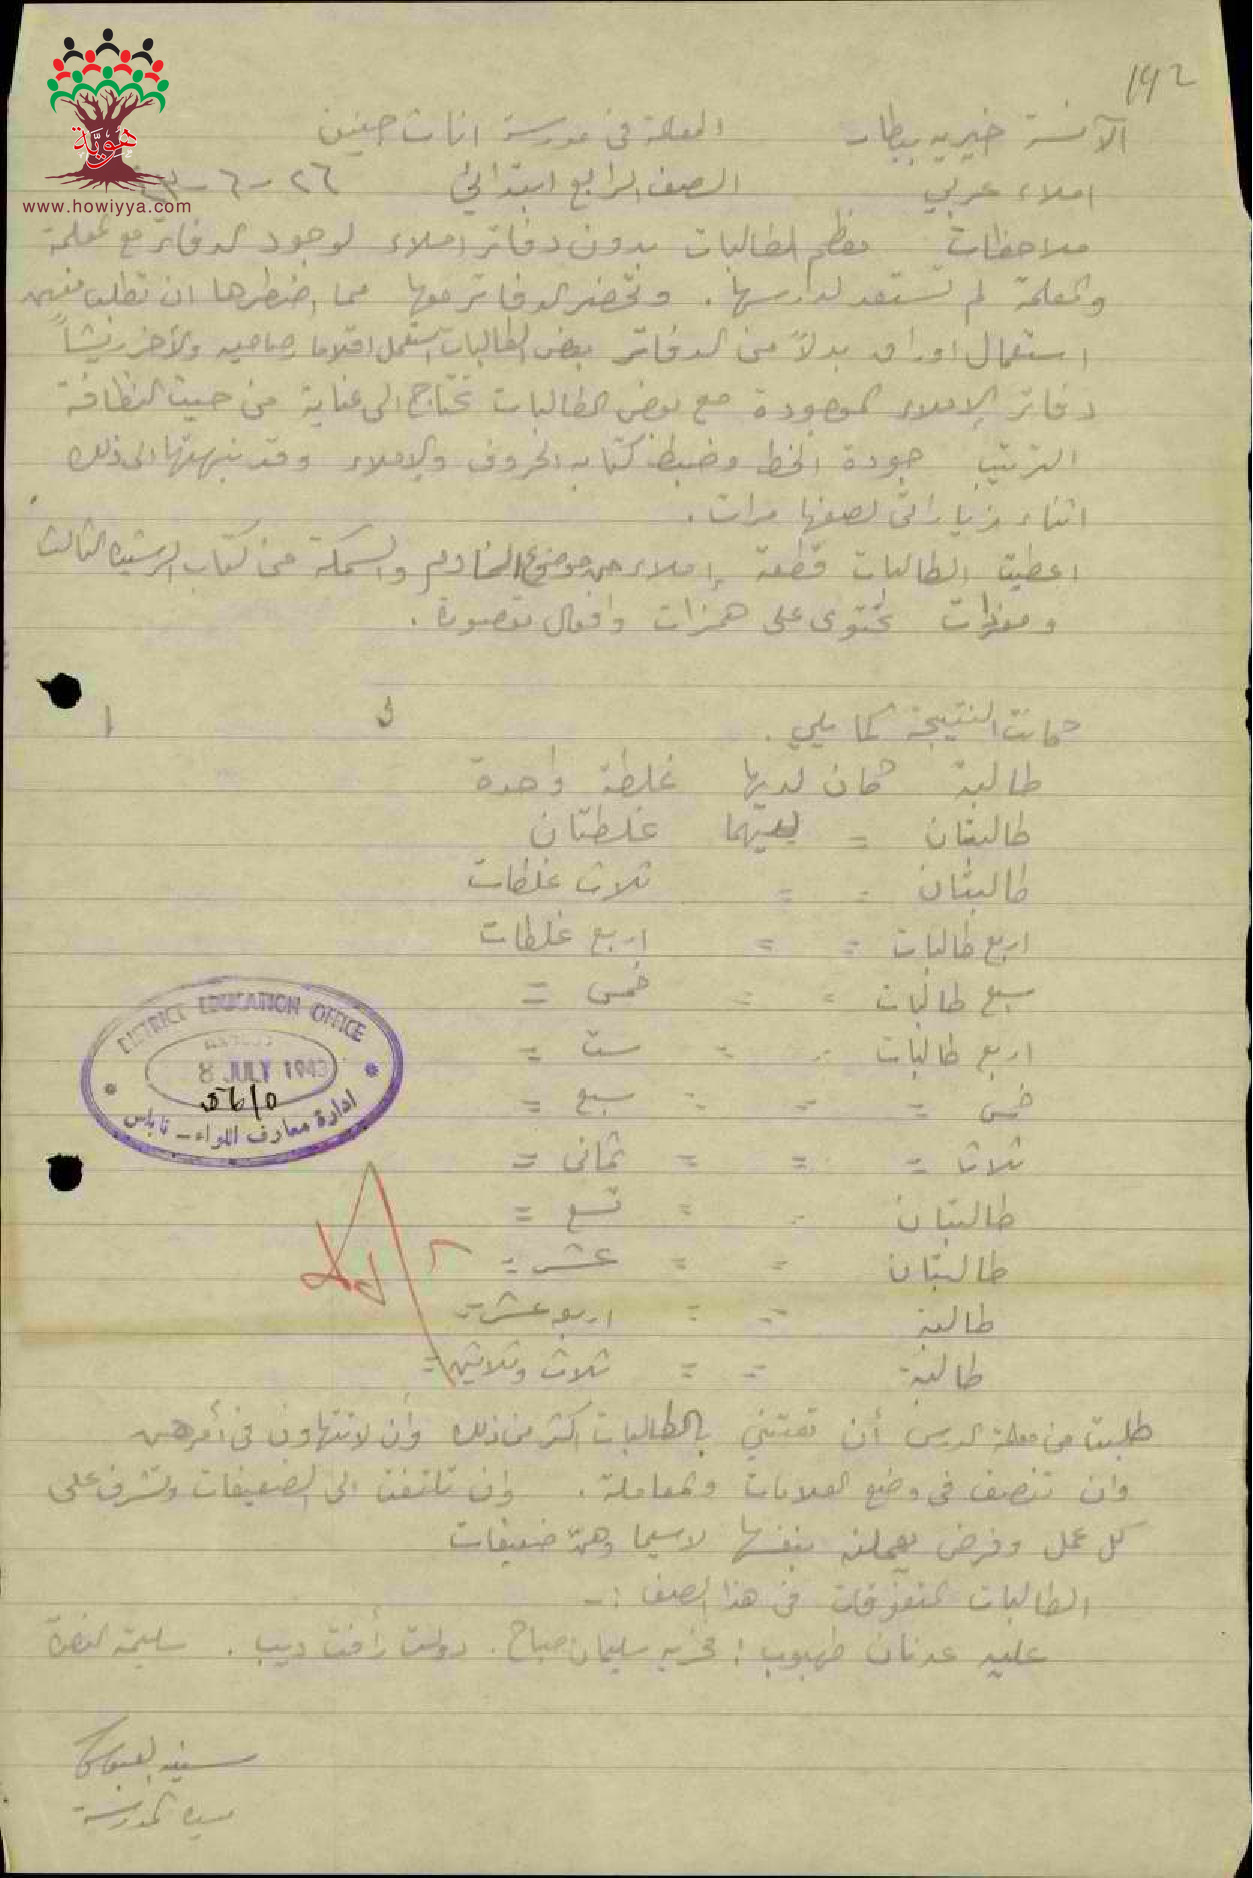 ١٩٢
هوية
www.howiyya.com
الآنسة خيريه بيطار المعلمة في مدرسة اناث جنين
املاء عربي الصف الرابع ابتدائي ٢٦-٦-
ملاحظات معظم الطالبات بدون دفاتر املاء لوجود الدفاتر مع المعلمة
والمعلمة لم تستعد لدارسها. وتحضر الدفاتر معها مما اضطرها ان تطلب منهن
استعمال اوراق بدلاً من الدفاتر بعض الطالبات استعمل اقلاما رصاصيه والأخر ريشاً
دفاتر الإملاء الموجودة مع بعض الطالبات تحتاج الى عناية من حيث النظافة
الترتيب جودة الخط وضبط كتابه الحروف والإملاء وقد نبهتها الى ذلك
اثناء زياراتي لصفها مرات.
اعطيت الطالبات قطعة إملاء من موضوع الخادم والسمكة من كتاب الرشيد الثالث
ومفردات تحتوى على همزات وافعال مقصورة.
كانت النتيجة كما يلي.
طالبة كان لديها غلطة واحدة
طالبتان = لديهما غلطتان
طالبتان = = ثلاث غلطات
اربع طالبات = = اربع غلطات
سبع طالبات = = خمس =
اربع طالبات = = ست =
خمس = = = سبع =
ثلاث = = = ثماني =
طالبتان = = تسع =
طالبتان = = عشر =
طالبة = = اربع عشر =
طالبة = = ثلاث وثلاثين =
DISTRICT EDUCATION OFFICE
NABLUS
8 JULY 1943
ادارة معارف اللواء - نابلس
طلبت من معلمة الدرس أن تعتني بالطالبات اكثر من ذلك وأن لا تتهاون في أمرهن
وان تنصف في وضع العلامات والمعاملة. وان تلتفت الى الضعيفات وتشرف على
كل عمل وفرض يعملنه بنفسها لاسيما وهنّ ضعيفات
الطالبات المتفوقات في هذا الصف :-
عليه عدنان طهبوب : فخريه سليمان صباح. دولت رأفت ديب. سليمة
مديرة المدرسة